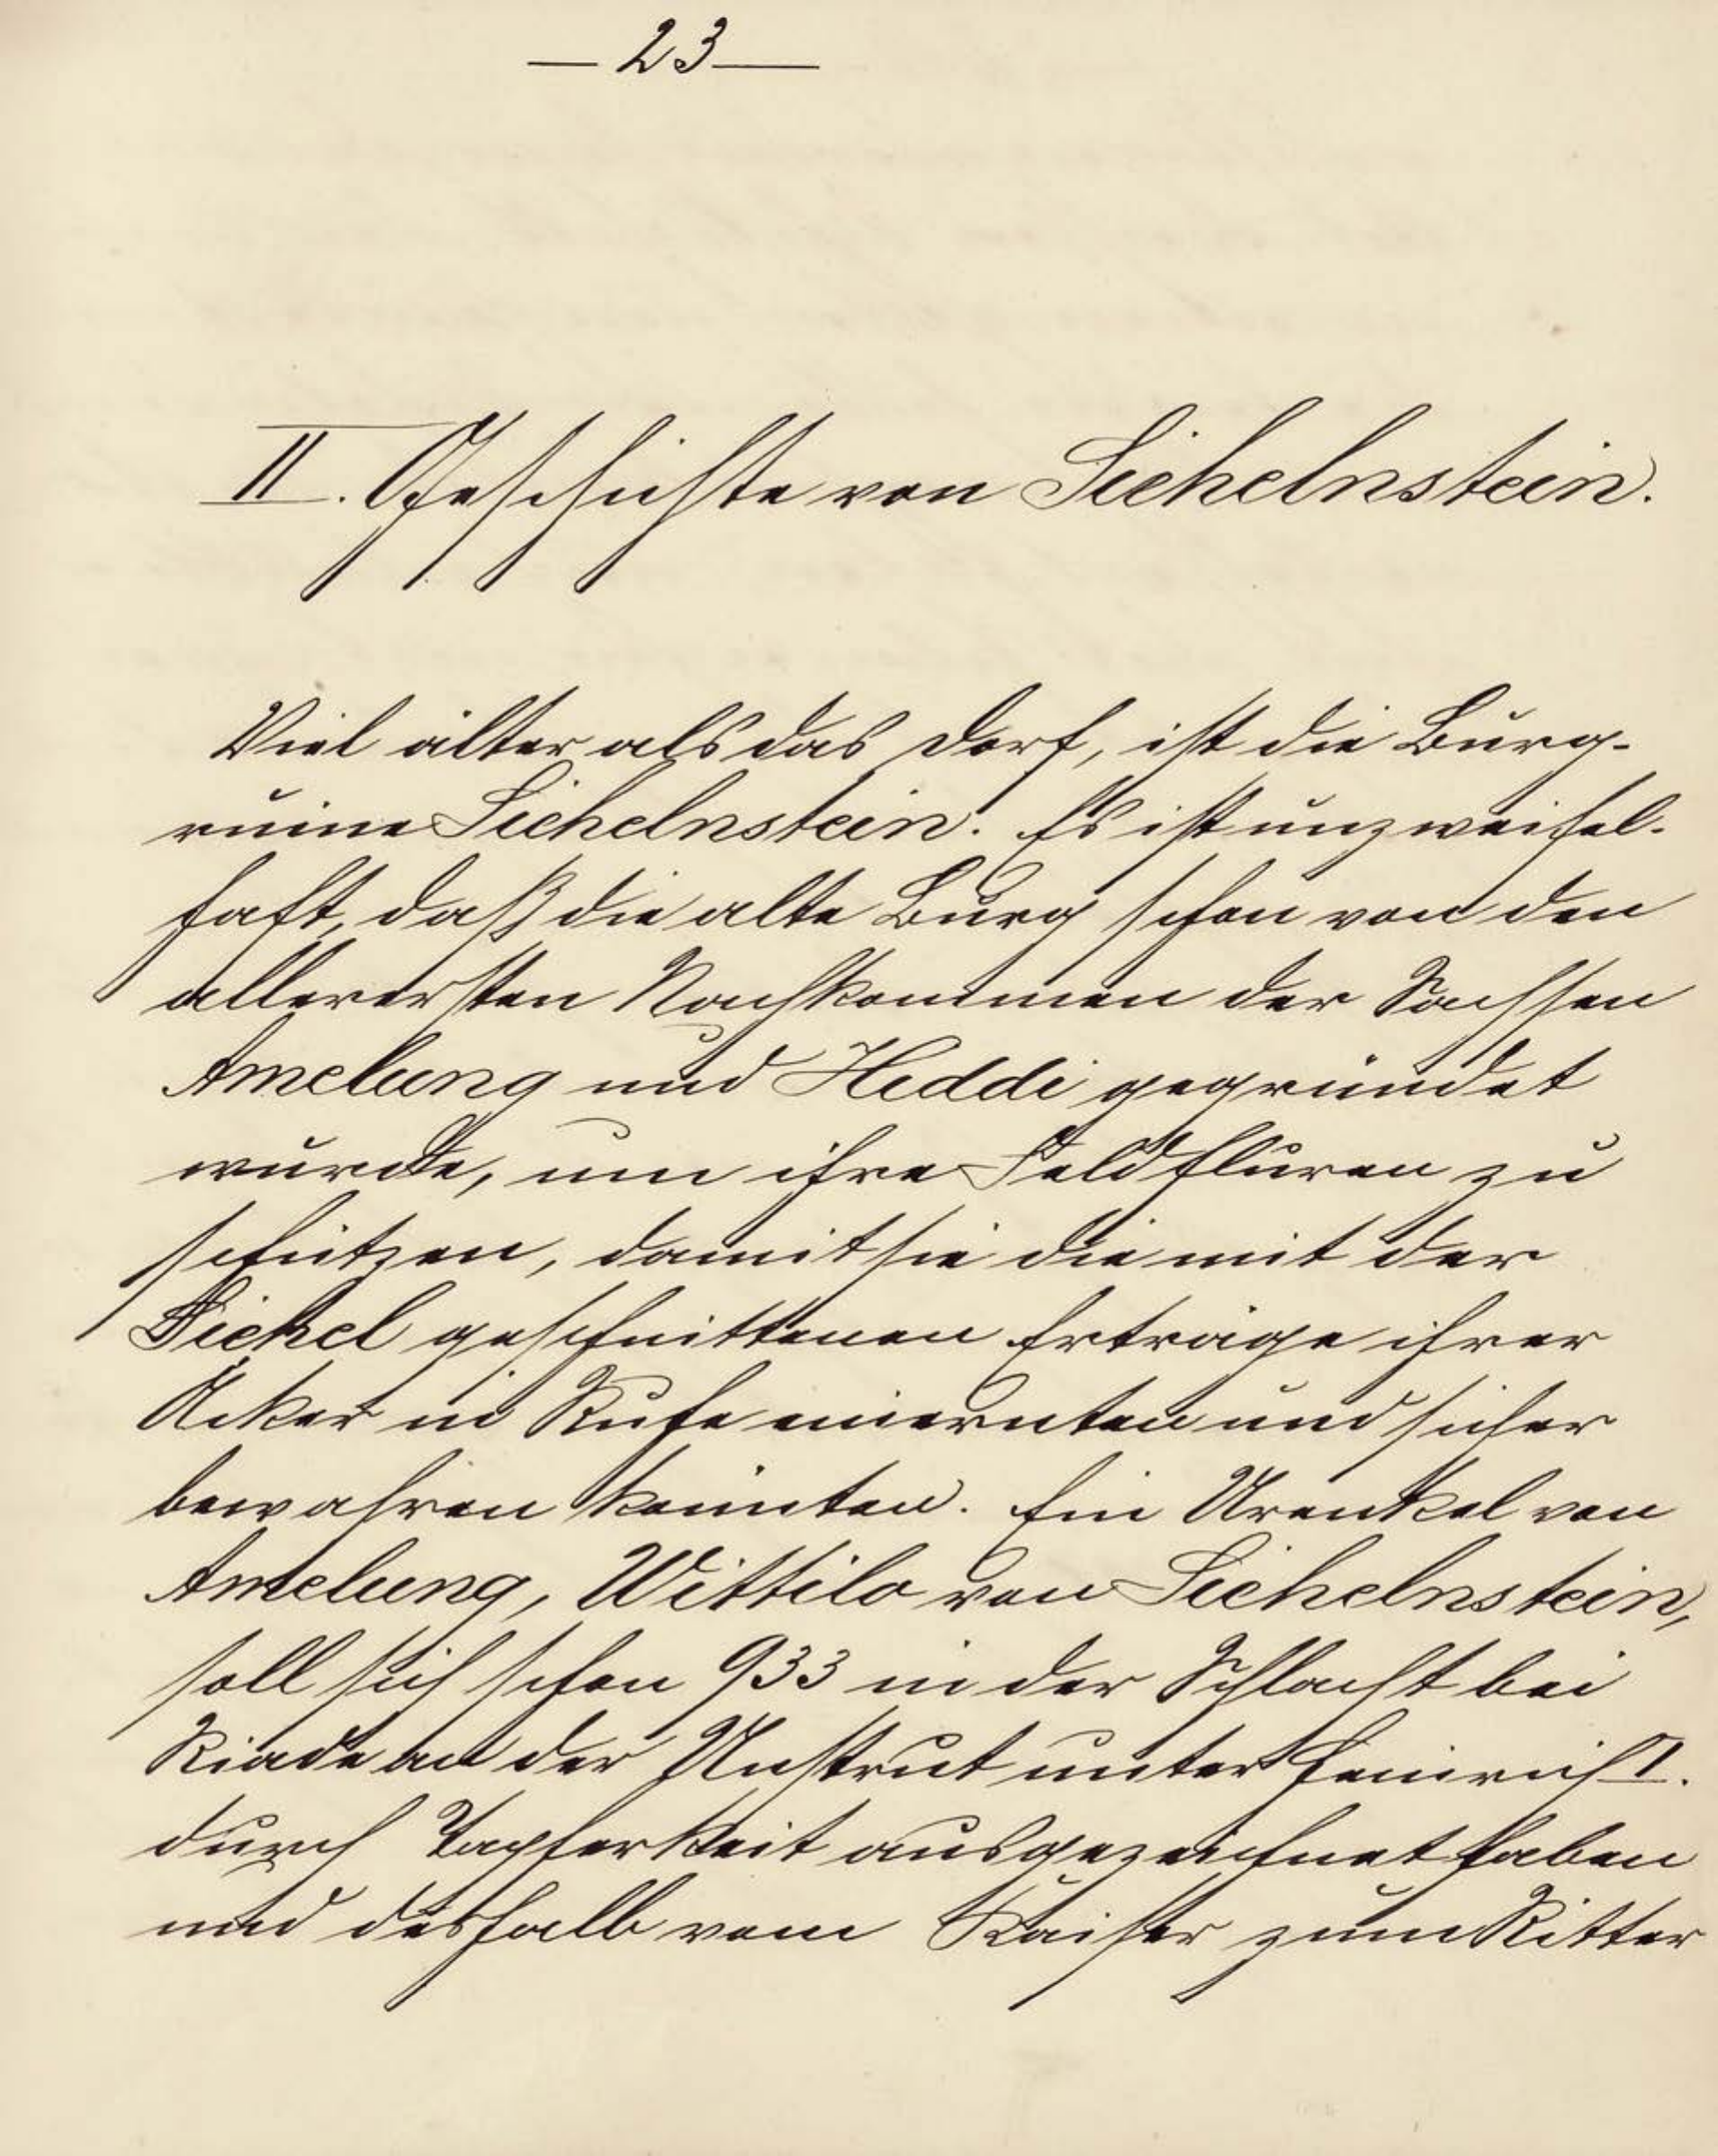 — 23 —
II. Geschichte von Sichelnstein.
Viel älter als das Dorf, ist die Burg-
ruine Sichelnstein. Es ist unzweifel-
haft, daß die alte Burg schon von den
allerersten Nachkommen der Sachsen
Amelung und Heddi gegründet
wurde, um ihre Feldfluren zu
schützen, damit sie die mit der
Sichel geschnittenen Erträge ihrer
Äcker in Ruhe einernten und sicher
bewahren könnten. Ein Urenkel von
Amelung, Wittilo von Sichelnstein,
soll sich schon 933 in der Schlacht bei
Riade an der Unstrut unter Heinrich I.
durch Tapferkeit ausgezeichnet haben
und deshalb vom Kaiser zum Ritter